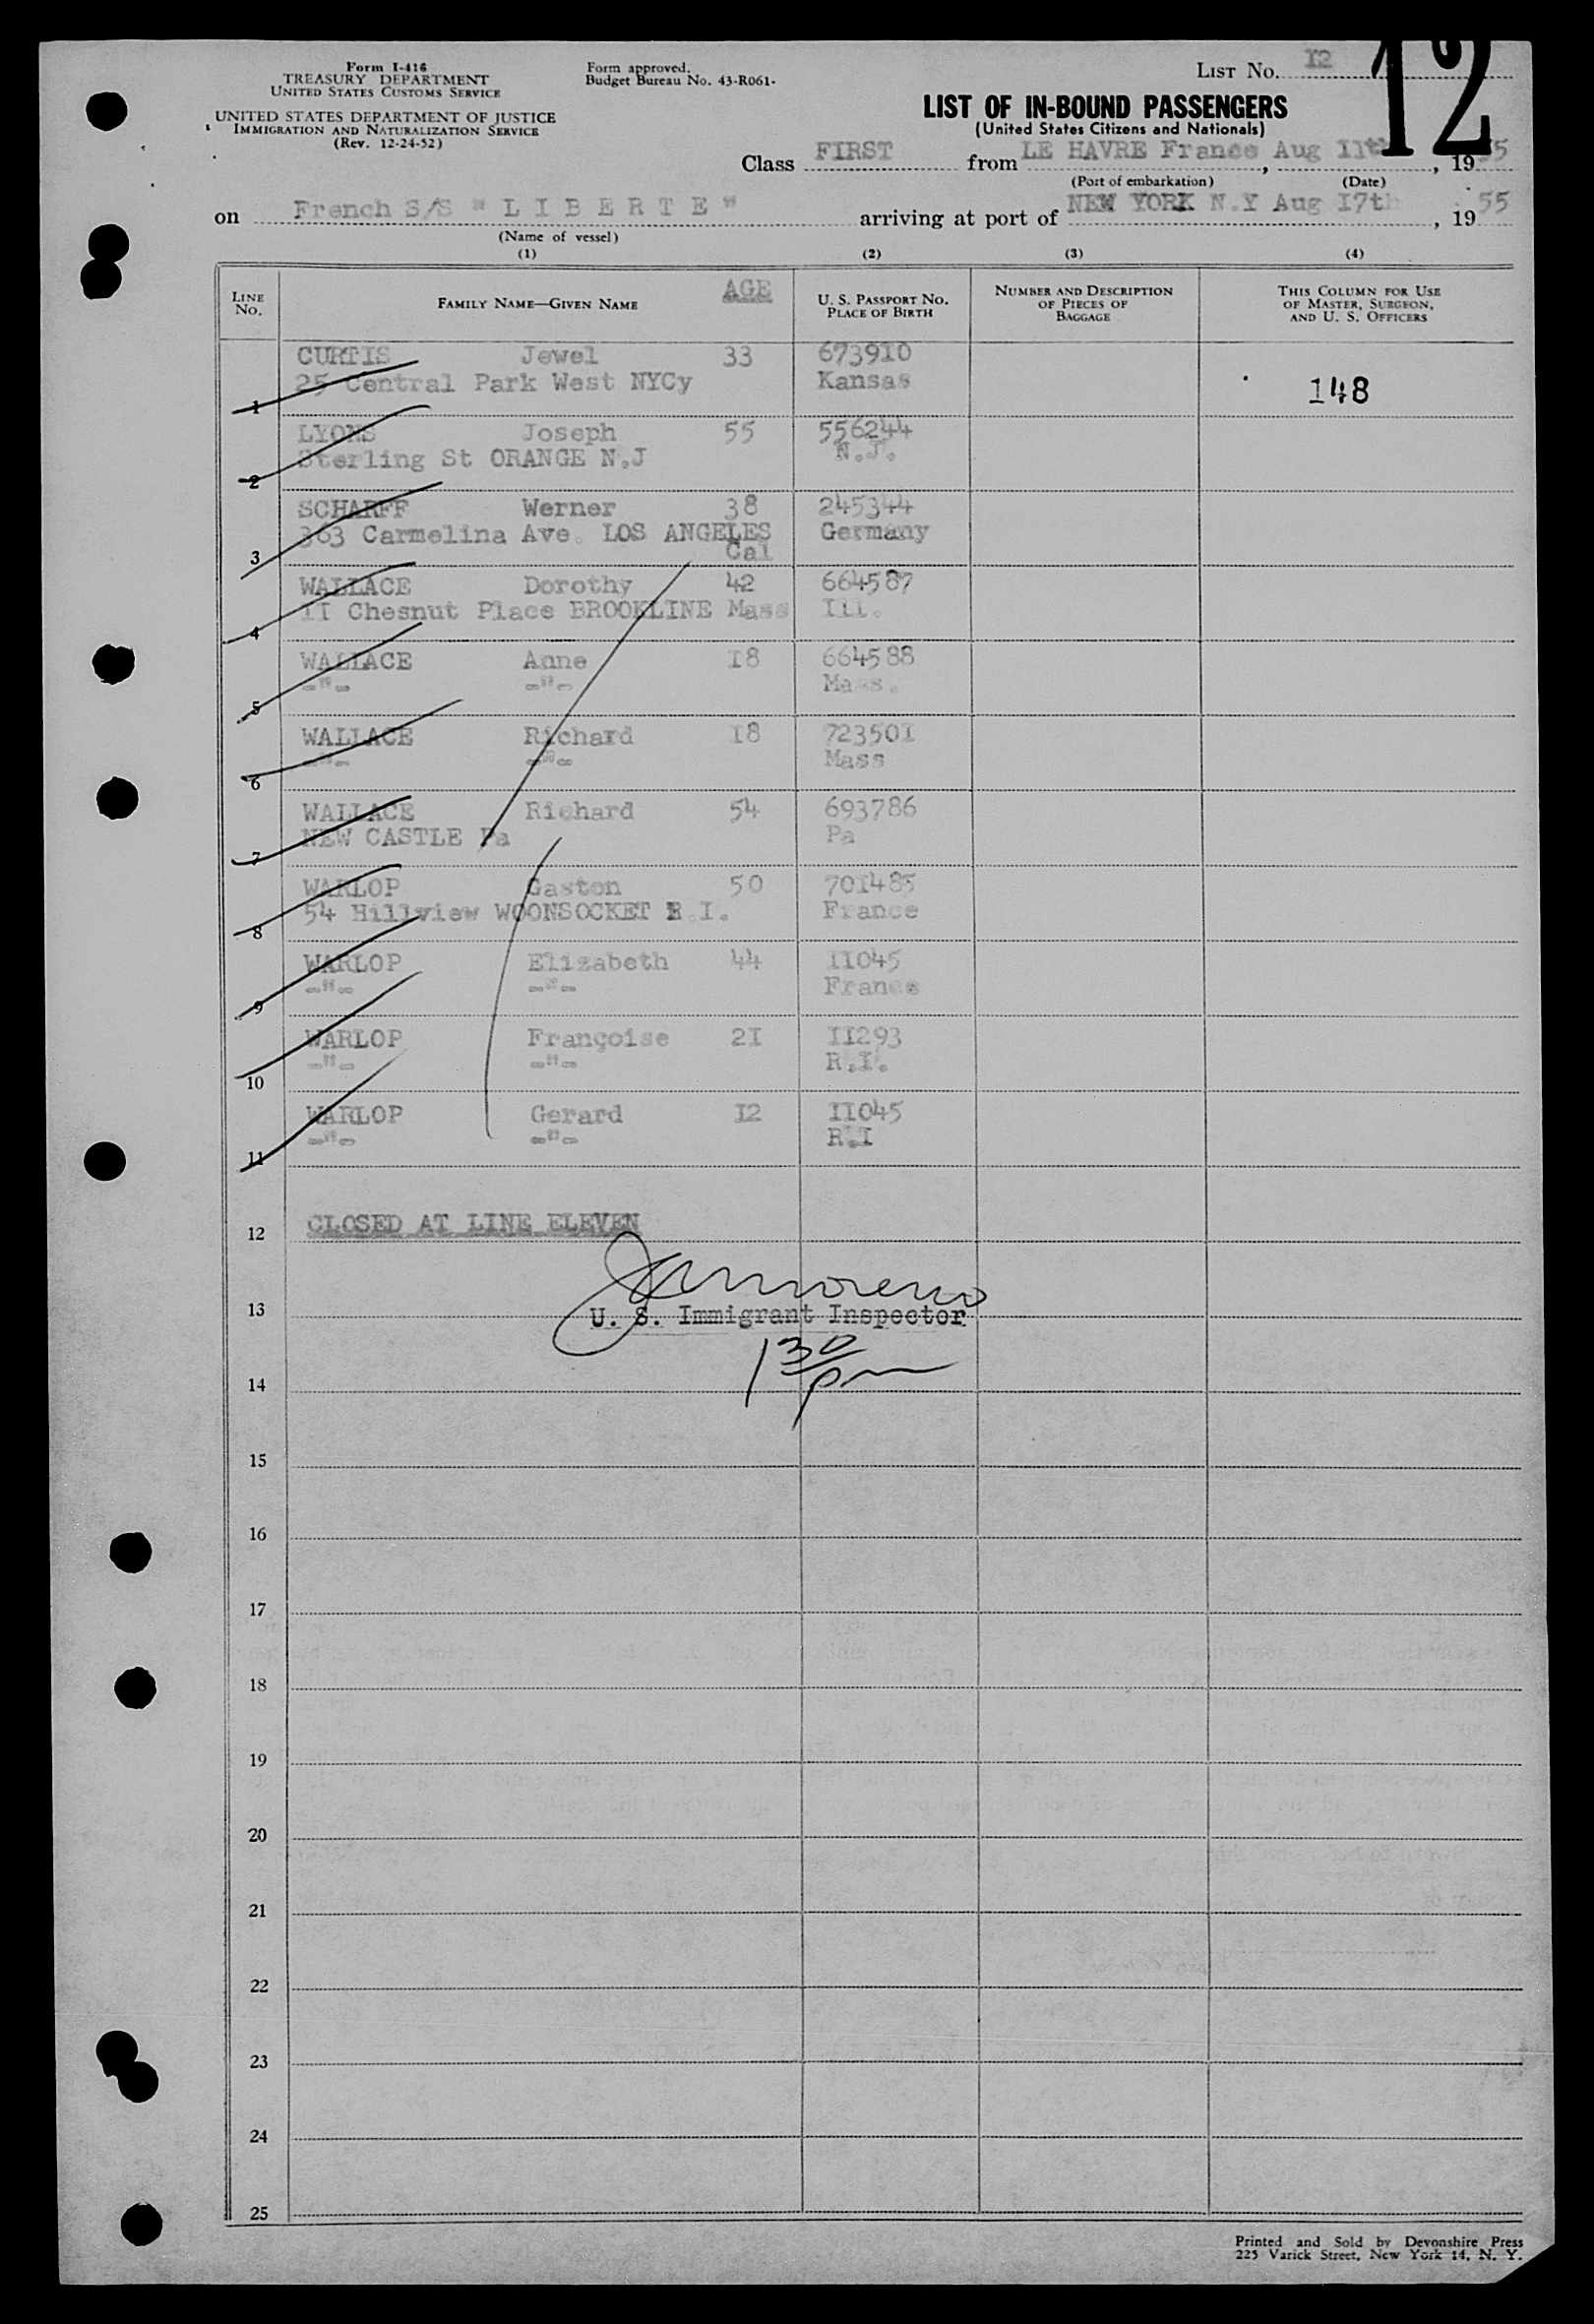 Form I-416
TREASURY DEPARTMENT
UNITED STATES CUSTOMS SERVICE
UNITED STATES DEPARTMENT OF JUSTICE
IMMIGRATION AND NATURALIZATION SERVICE
(Rev. 12-24-52)
Form approved.
Budget Bureau No. 43-R061-
LIST No. I2
12
LIST OF IN-BOUND PASSENGERS
(United States Citizens and Nationals)
Class FIRST from LE HAVRE France, Aug IIth, 1955
(Port of embarkation) (Date)
on French S/S "L I B E R T E" arriving at port of NEW YORK N.Y Aug I7th, 1955
(Name of vessel)
(1) (2) (3) (4)
LINE No. FAMILY NAME—GIVEN NAME AGE U. S. PASSPORT No. PLACE OF BIRTH NUMBER AND DESCRIPTION OF PIECES OF BAGGAGE THIS COLUMN FOR USE OF MASTER, SURGEON, AND U. S. OFFICERS
CURTIS Jewel 33 6739I0
1 25 Central Park West NYCy Kansas 148
LYONS Joseph 55 556244
2 Sterling St ORANGE N.J N.J.
SCHARFF Werner 38 245344
363 Carmelina Ave. LOS ANGELES Germany
3 Cal
WALLACE Dorothy 42 664587
4 II Chesnut Place BROOKLINE Mass Ill.
WALLACE Anne I8 664588
5 -"- -"- Mass.
WALLACE Richard I8 72350I
6 -"- -"- Mass
WALLACE Richard 54 693786
7 NEW CASTLE Pa Pa
WARLOP Gaston 50 70I485
8 54 Hillview WOONSOCKET R.I. France
WARLOP Elizabeth 44 II045
9 -"- -"- France
WARLOP Françoise 2I II293
10 -"- -"- R.I.
WARLOP Gerard I2 II045
11 -"- -"- R.I
12 CLOSED AT LINE ELEVEN
13 U. S. Immigrant Inspector
1 30 pm
14
15
16
17
18
19
20
21
22
23
24
25
Printed and Sold by Devonshire Press
225 Varick Street, New York 14, N. Y.